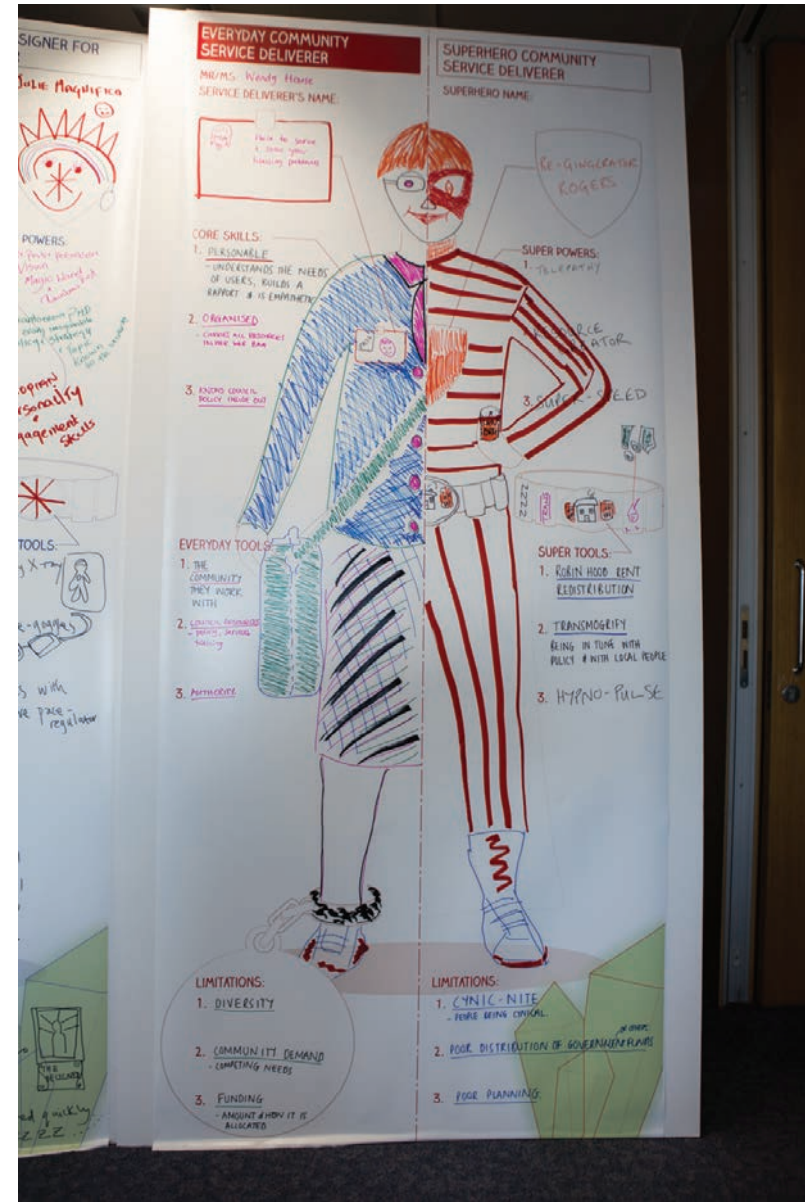 SIGNER FOR
JULIE MAGNIFICA
POWERS:
Vision
Magic Wand
personality
engagement
skills
TOOLS:
X-ray
s with
ve pace-
regulator
THE
ed quickly
ZZZ
EVERYDAY COMMUNITY
SERVICE DELIVERER
MR/MS Wendy House
SERVICE DELIVERER'S NAME:
Here to serve
& solve your
housing problems
CORE SKILLS:
1. PERSONABLE
- UNDERSTANDS THE NEEDS
OF USERS, BUILDS A
RAPPORT & IS EMPATHETIC
2. ORGANISED
- CARRIES ALL RESOURCES
IN HER WEE BAG
3. KNOWS COUNCIL
POLICY INSIDE OUT
EVERYDAY TOOLS:
1. THE
COMMUNITY
THEY WORK
WITH
2. COUNCIL RESOURCES
- policy, services
housing
3. AUTHORITY
LIMITATIONS:
1. DIVERSITY
2. COMMUNITY DEMAND
- COMPETING NEEDS
3. FUNDING
- AMOUNT & HOW IT IS
ALLOCATED
SUPERHERO COMMUNITY
SERVICE DELIVERER
SUPERHERO NAME:
RE-GINGERATOR
ROGERS
SUPER POWERS:
1. TELEPATHY
2. RESOURCE
3. SUPER-SPEED
ZZZZ
TRANS
SUPER TOOLS:
1. ROBIN HOOD RENT
REDISTRIBUTION
2. TRANSMOGRIFY
BEING IN TUNE WITH
POLICY & WITH LOCAL PEOPLE
3. HYPNO-PULSE
LIMITATIONS:
1. CYNIC-NITE
- PEOPLE BEING CYNICAL
2. POOR DISTRIBUTION OF GOVERNMENT or other FUNDS
3. POOR PLANNING